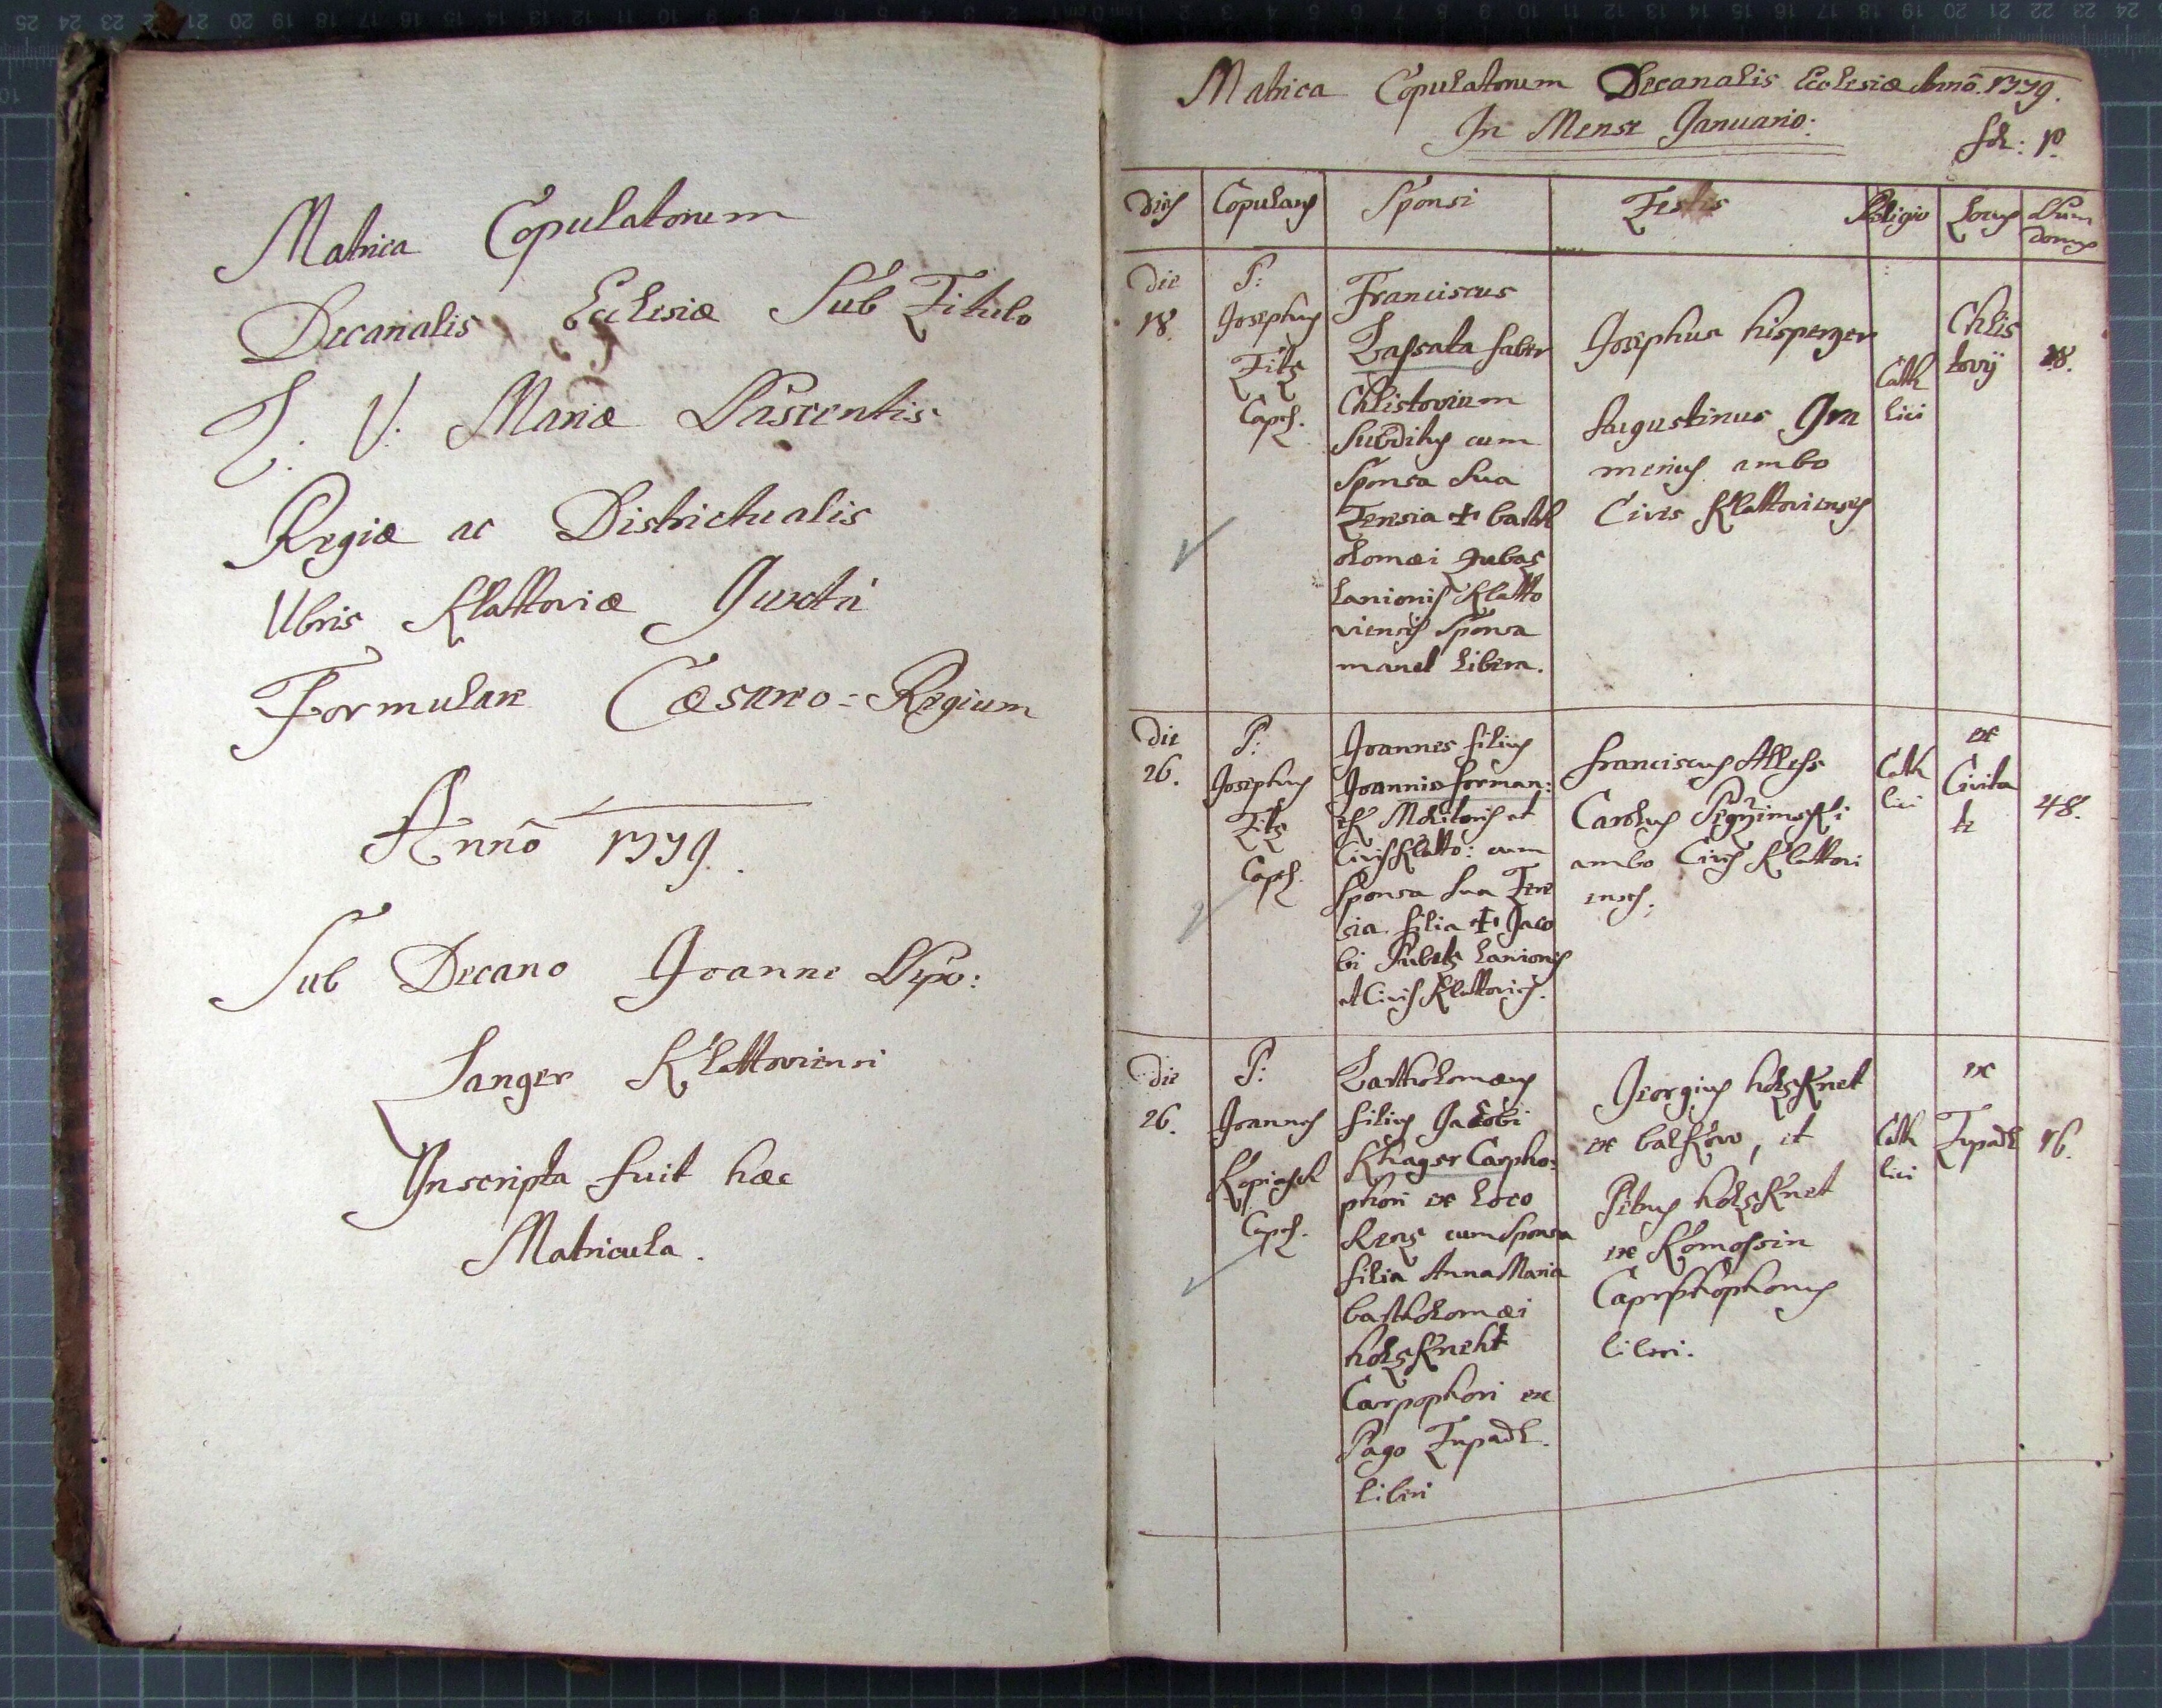 Matrica Copulatorum
Decanalis Ecclesiæ Sub Titulo
B. V. Mariæ Nascentis
Regiæ ac Districtualis
Urbis Klattoviæ Juxta
Formulare Cæsareo=Regium
Annõ 1779.
Sub Decano Joanne Nepo:
Langer Klattoviensi
Inscripta fuit hæc
Matricula.
Matrica Copulatorum Decanalis Ecclesiæ Annõ. 1779.
In Mense Januario:
fol: 1.
Dies Copulans Sponsi Testes Religio Locus Num domus
Die
18.
P:
Josephus
Titz
Capel.
Franciscus
Zassata faber
Chlistovium
Subditus cum
Sponsa Sua
Teresia + barth
olomæi Jubaz
Lanionis Klatto
viensis Sponsa
manet Libera.
Josephus hisperger
Augustinus Gra
menius ambo
Cives Klattovienses
Cath
lici
Chlis
tovÿ
18.
Die
26.
P:
Josephus
Titz
Capel.
Joannes filius
Joannis forman:
ek Molitoris et
Civis Klatto: cum
Sponsa Sua Tere
sia filia + Jaco
bi Lanionis
et Civis Klattovies.
Franciscus
Carolus
ambo Cives Klattovi
enses.
Cath
lici
ex
Civita
te
48.
Die
26.
P:
Joannes
Kopiasch
Capel.
Bartholomæus
filius Jacobi
Khager Carpho:
phori ex Loco
Renz cum Sponsa
filia Anna Maria
bartholomæi
holzKneht
Carpophori ex
Pago Tupadl.
Liberi
Georgius holzKnet
ex balKow, et
Petrus holzKnet
ex Komossin
liberi.
Cath
lici
ex
Tupadl
16.